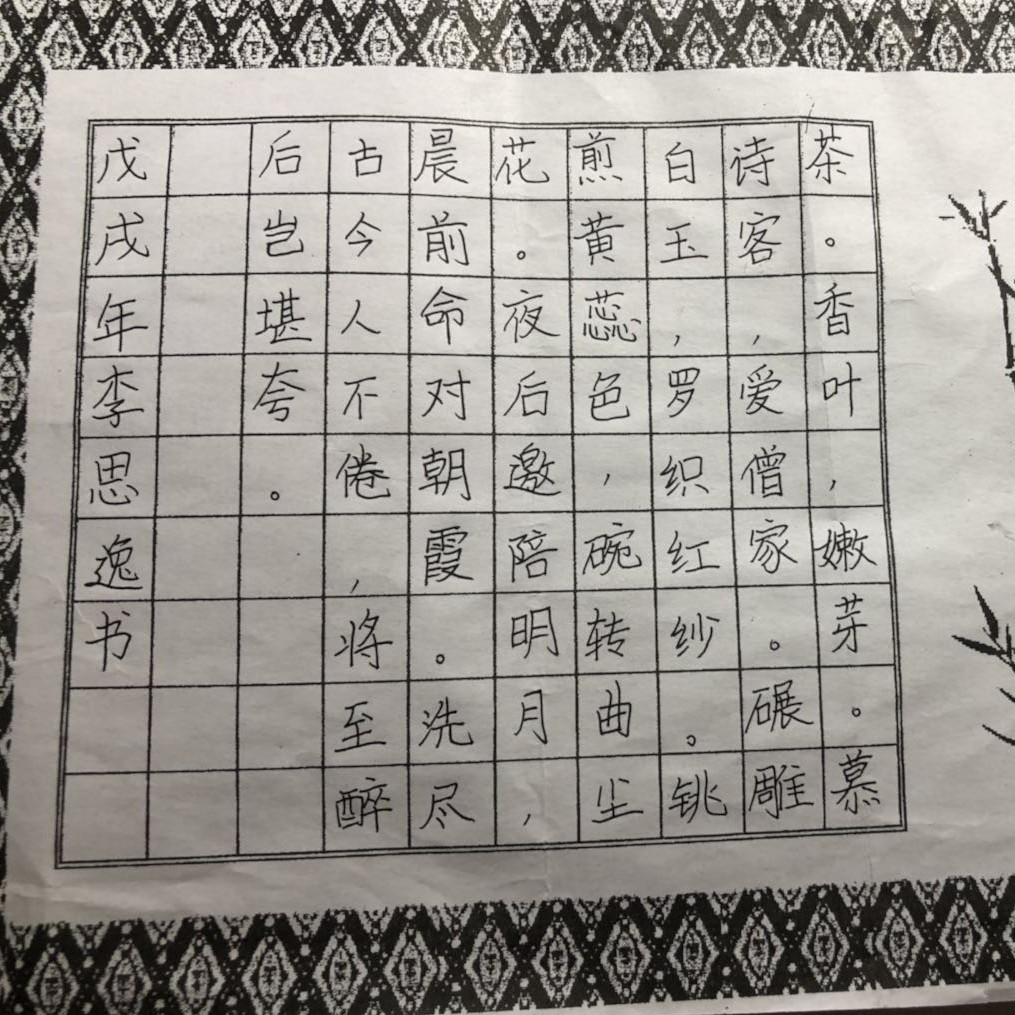 茶。香叶，嫩芽。慕
诗客，爱僧家。碾雕
白玉，罗织红纱。铫
煎黄蕊色，碗转曲尘
花。夜后邀陪明月，
晨前命对朝霞。洗尽
古今人不倦，将至醉
后岂堪夸。
戊戌年李思逸书